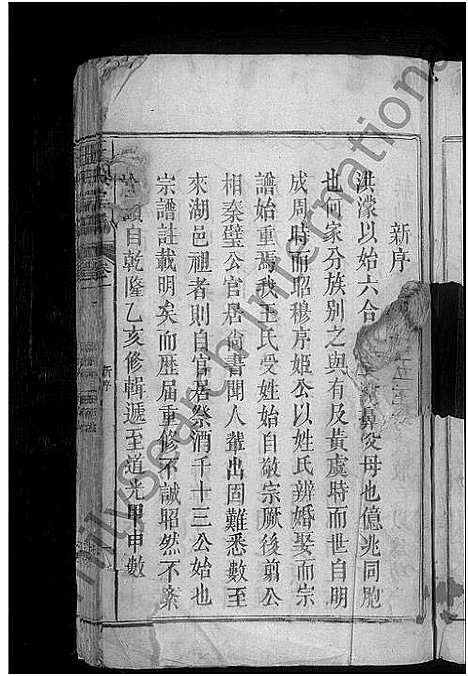 新序
洪濛以始六合
父母也億兆同胞
也何家分族別之與有及黃虞時而世自明
成周時而昭穆序姬公以姓氏辨婚娶而宗
譜始重焉我王氏受姓始自敬宗厥後翦公
相秦璧公官居尚書聞人輩出固難悉數至
來湖邑祖者則自官居祭酒千十三公始也
宗譜註載明矣而歷屆重修不誠昭然不紊
自乾隆乙亥修輯遞至道光甲申數
新序
FamilySearch International